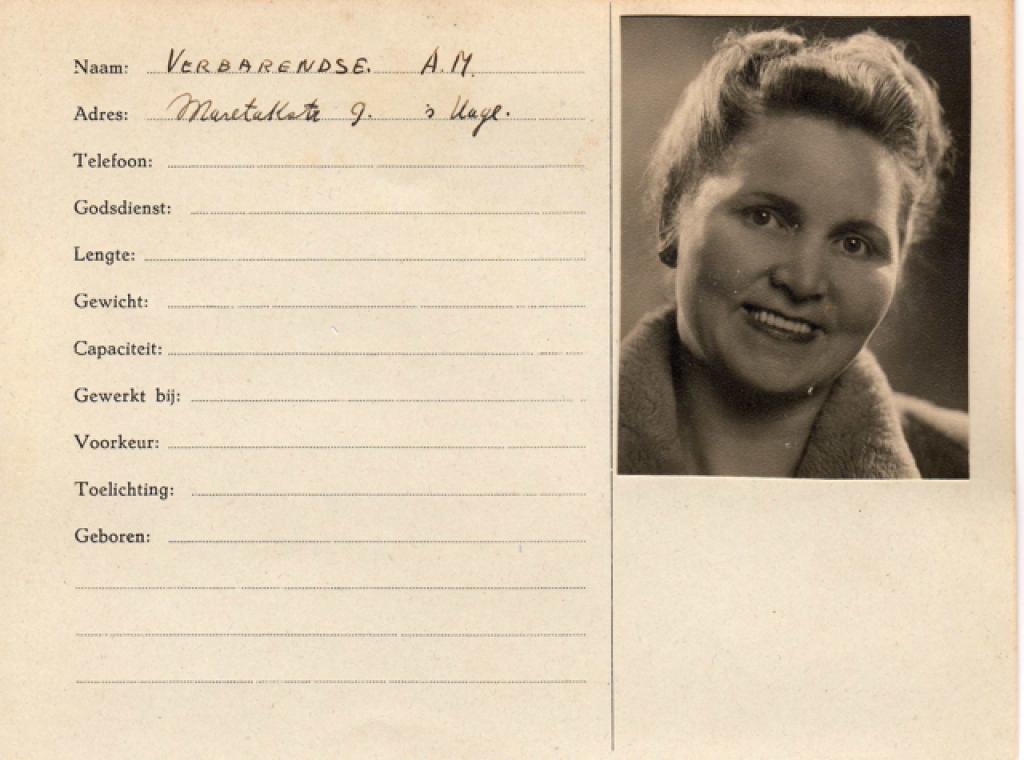 Naam: VERBARENDSE. A.M.
Adres: Maretakstr 9. 's Hage.
Telefoon:
Godsdienst:
Lengte:
Gewicht:
Capaciteit:
Gewerkt bij:
Voorkeur:
Toelichting:
Geboren: